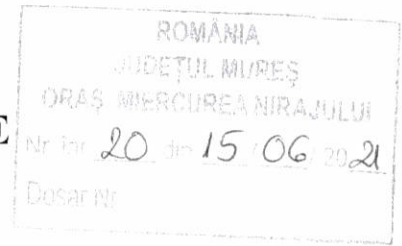 ROMÂNIA
JUDEȚUL MUREȘ
ORAȘ MIERCUREA NIRAJULUI
E
Nr. 20 din 15 06 2021
Dosar Nr.